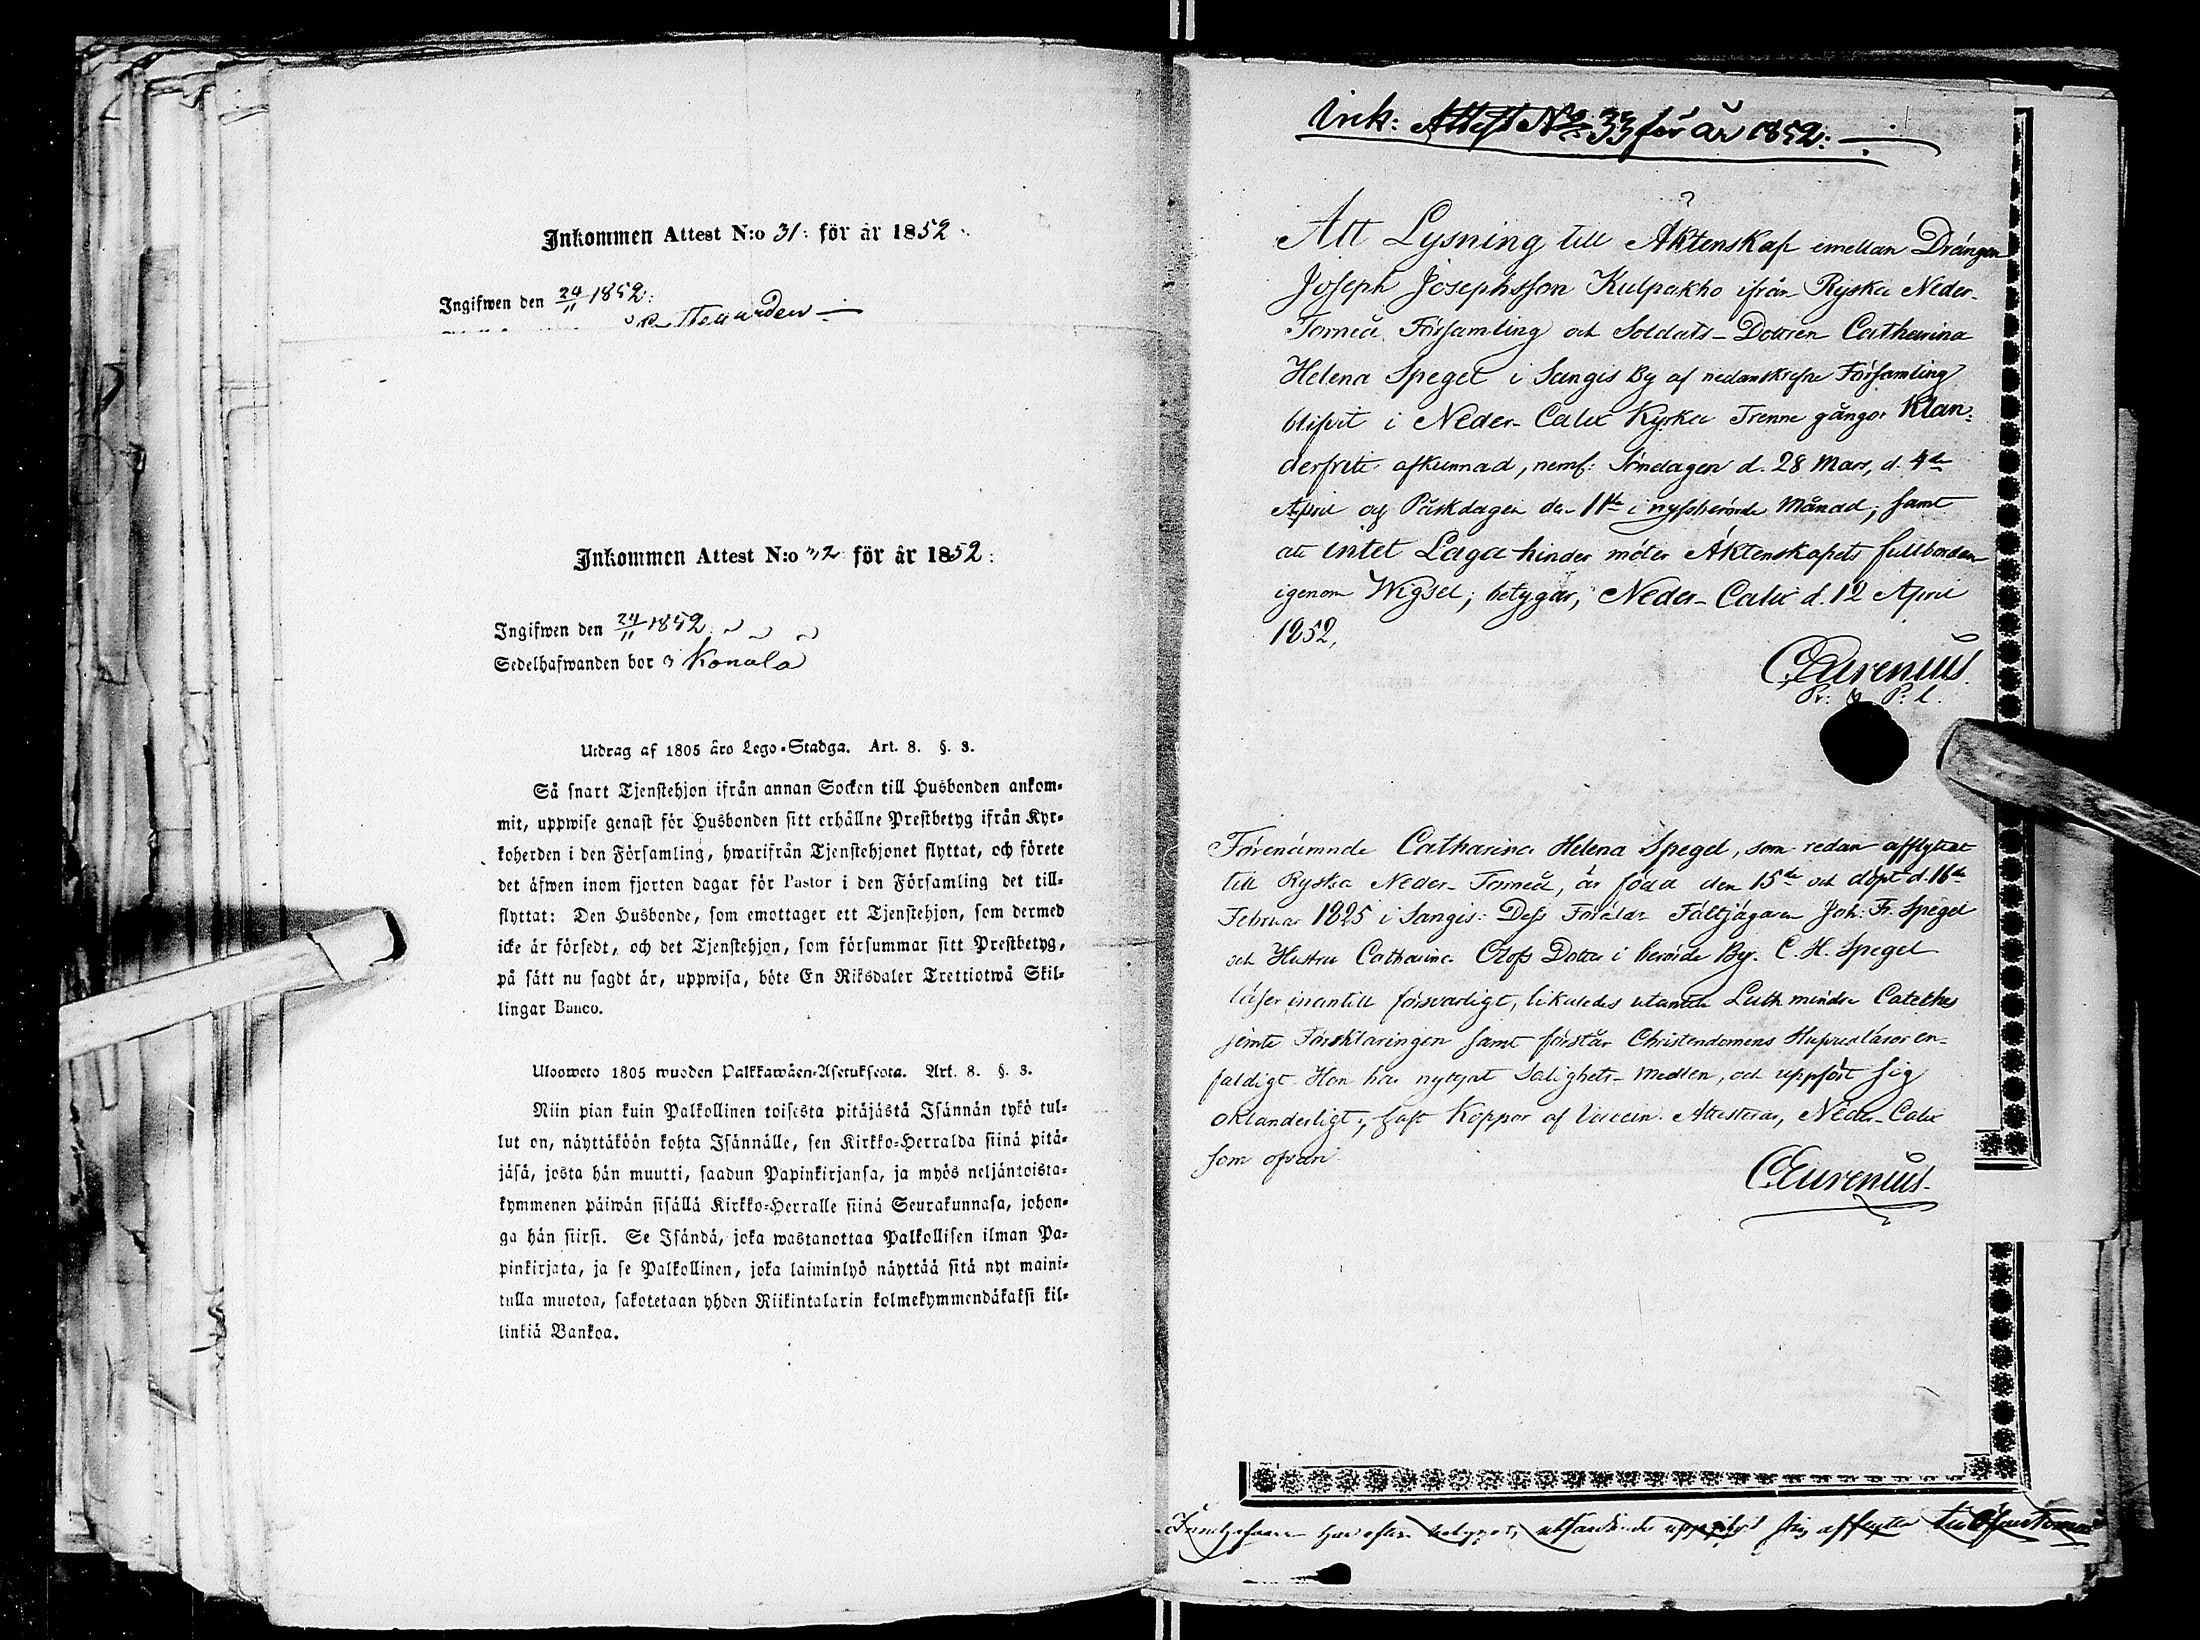 Inkommen Attest N:o 31: för år 1852.
Ingifwen den 24/11 1852:
Inkommen Attest N:o 32 för år 1852:
Ingifwen den 24/11 1852.
Sedelhafwanden bor i Konala
Utdrag af 1805 års Lego-Stadga. Art. 8. §. 3.
Så snart Tjenstehjon ifrån annan Socken till Husbonden ankom-
mit, uppwise genast för Husbonden sitt erhållne Prestbetyg ifrån Kyr-
koherden i den Församling, hwarifrån Tjenstehjonet flyttat, och förete
det äfwen inom fjorton dagar för Pastor i den Församling det till-
flyttat: Den Husbonde, som emottager ett Tjenstehjon, som dermed
icke är försedt, och det Tjenstehjon, som försummar sitt Prestbetyg,
på sätt nu sagdt är, uppwisa, böte En Riksdaler Trettiotwå Skil-
lingar Banco.
Ulosweto 1805 wuoden Palkkawäen-Asetuksesta. Art. 8. §. 3.
Niin pian kuin Palkollinen toisesta pitäjästä Isännän tykö tul-
lut on, näyttäköön kohta Isännälle, sen Kirkko-Herralda siinä pitä-
jäsä, josta hän muutti, saadun Papinkirjansa, ja myös neljäntoista-
kymmenen päiwän sisällä Kirkko-Herralle siinä Seurakunnasa, johon-
ga hän siirsi. Se Isändä, joka wastanottaa Palkollisen ilman Pa-
pinkirjata, ja se Palkollinen, joka laiminlyö näyttää sitä nyt maini-
tulla muotoa, sakotetaan yhden Riikintalarin kolmekymmendäkaksi kil-
linkiä Bankoa.
Ink: Attest No 33 för år 1852:
Att Lysning till Äktenskap emellan Drängen
Joseph Josephsson Kulpakko ifrån Ryska Neder-
Torneå Församling och Soldats-Dottren Catharina
Helena Spegel i Sangis By af nedanskrefne Församling
blifvit i Neder-Calix Kyrka Trenne gångor Klan-
derfritt afkunnad, neml: Söndagen d. 28 Mars, d. 4de
April og Påskdagen den 11te i nyssberörde Månad; samt
att intet Laga hinder möter Äktenskapets fullbordan
igenom Wigsel; betygar, Neder-Calix d. 12 April
1852,
C. Eurenius.
Pr: & P: l.
Förenämnde Catharina Helena Spegel, som redan afflyttat
till Ryska Neder-Torneå, är född den 15de och döpt d. 16de
Februar 1825 i Sangis: Dess Föräldr Fältjägaren Joh: Fr. Spegel
och Hustru Catharina Olofs Dotter i berörde By. C. H. Spegel
läser innantill försvarligt, likaledes utantill Luth. mindre Cateches
jemte Förklaringen samt förstår Christendomens Hufvudläror en-
faldigt. Hon har nyttjat Salighets-Medlen, och uppfört sig
oklanderligt; haft Koppor af Vaccin. Attesteras, Neder-Calix
som ofvan
C. Eurenius.